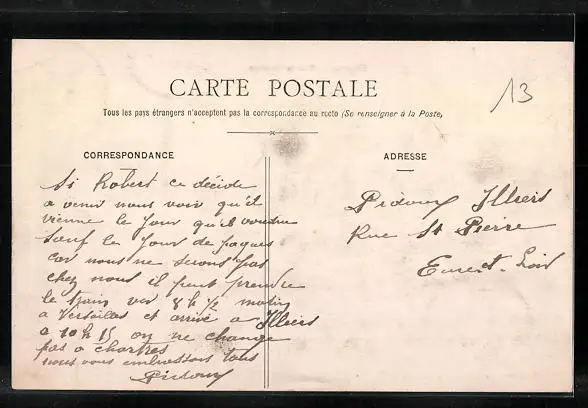 CARTE POSTALE
13
Tous les pays étrangers n'acceptent pas la correspondance au recto (Se renseigner à la Poste)
CORRESPONDANCE
Si Robert ce décide
a venir nous voir qu'il
vienne le jour qu'il voudra
sauf le jour de paques
car nous ne serons pas
chez nous il peut prendre
le train ver 8h 1/2 matin
a Versailles et arrivé a Illiers
a 10h 15 on ne change
pas a chartres
nous vous embrassons tous
Pidoux
ADRESSE
Pidoux Illiers
Rue St Pierre
Eure et Loir